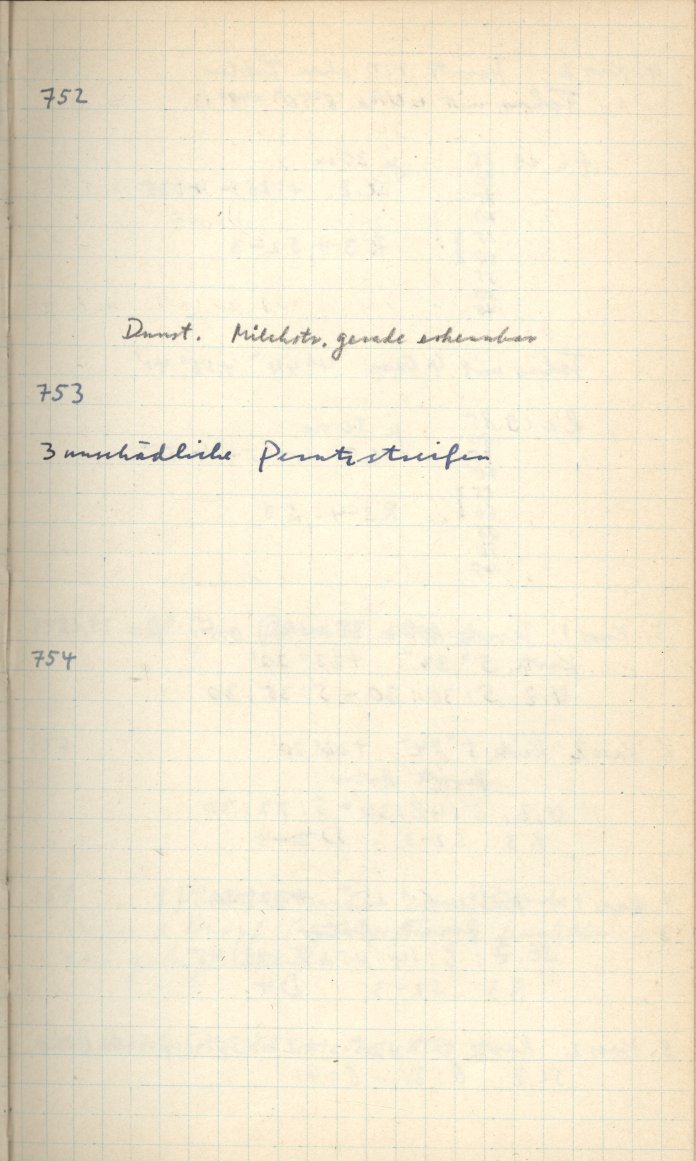 752
Dunst. Milchstr. gerade erkennbar
753
3 unschädliche Perutzstreifen
754